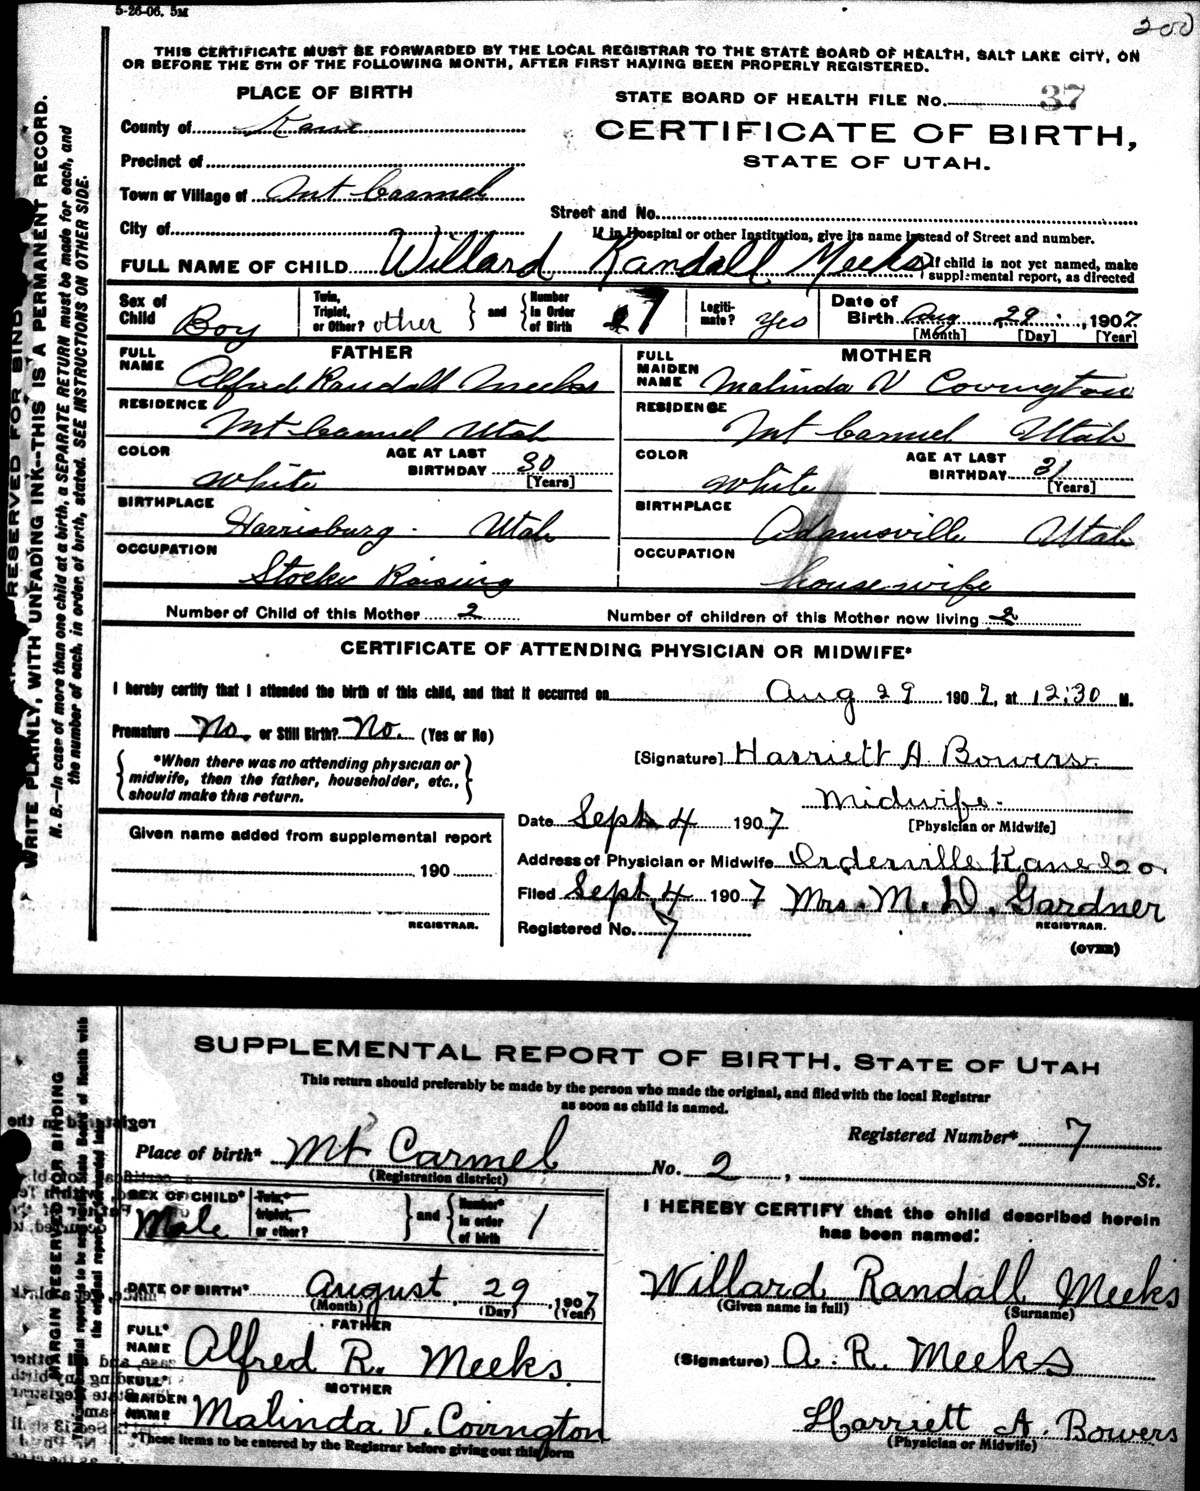 5-26-06. 5M
200
THIS CERTIFICATE MUST BE FORWARDED BY THE LOCAL REGISTRAR TO THE STATE BOARD OF HEALTH, SALT LAKE CITY, ON
OR BEFORE THE 5TH OF THE FOLLOWING MONTH, AFTER FIRST HAVING BEEN PROPERLY REGISTERED.
RESERVED FOR BIND
WRITE PLAINLY, WITH UNFADING INK--THIS IS A PERMANENT RECORD.
N. B.—In case of more than one child at a birth, a SEPARATE RETURN must be made for each, and
the number of each, in order of birth, stated. SEE INSTRUCTIONS ON OTHER SIDE.
PLACE OF BIRTH
STATE BOARD OF HEALTH FILE No. 37
County of Kane
CERTIFICATE OF BIRTH,
STATE OF UTAH.
Precinct of
Town or Village of Mt Carmel
Street and No.
City of
If in Hospital or other Institution, give its name instead of Street and number.
FULL NAME OF CHILD Willard Randall Meeks
If child is not yet named, make
supplemental report, as directed
Sex of Child Boy
Twin, Triplet, or Other? other and Number in Order of Birth 7
Legiti-mate? yes
Date of Birth Aug 29, 1907
[Month] [Day] [Year]
FATHER
FULL NAME Alfred Randall Meeks
RESIDENCE Mt Carmel Utah
COLOR White AGE AT LAST BIRTHDAY 30 [Years]
BIRTHPLACE Harrisburg Utah
OCCUPATION Stock Raising
MOTHER
FULL MAIDEN NAME Malinda V Covington
RESIDENCE Mt Carmel Utah
COLOR White AGE AT LAST BIRTHDAY 31 [Years]
BIRTHPLACE Adamsville Utah
OCCUPATION house wife
Number of Child of this Mother 2 Number of children of this Mother now living 2
CERTIFICATE OF ATTENDING PHYSICIAN OR MIDWIFE*
I hereby certify that I attended the birth of this child, and that it occurred on Aug 29 1907, at 12:30 M.
Premature No. or Still Birth? No. (Yes or No)
*When there was no attending physician or
midwife, then the father, householder, etc.,
should make this return.
[Signature] Harriett A. Bowers
Midwife.
[Physician or Midwife]
Date Sept. 4 1907
Given name added from supplemental report
190
REGISTRAR.
Address of Physician or Midwife Orderville Kane Co.
Filed Sept. 4 1907 Mrs. M. D. Gardner
REGISTRAR.
Registered No. 7
(OVER)
SUPPLEMENTAL REPORT OF BIRTH, STATE OF UTAH
This return should preferably be made by the person who made the original, and filed with the local Registrar
as soon as child is named.
MARGIN RESERVED FOR BINDING
Registered Number* 7
Place of birth* Mt Carmel No. 2, St.
(Registration district)
SEX OF CHILD* Male
Twin, triplet, or other? and Number* in order of birth 1
DATE OF BIRTH* August 29, 1907
(Month) (Day) (Year)
FATHER
FULL* NAME Alfred R. Meeks
MOTHER
FULL* MAIDEN NAME Malinda V. Covington
*These items to be entered by the Registrar before giving out this form
I HEREBY CERTIFY that the child described herein
has been named:
Willard Randall Meeks
(Given name in full) (Surname)
(Signature) A. R. Meeks
Harriett A. Bowers
(Physician or Midwife)